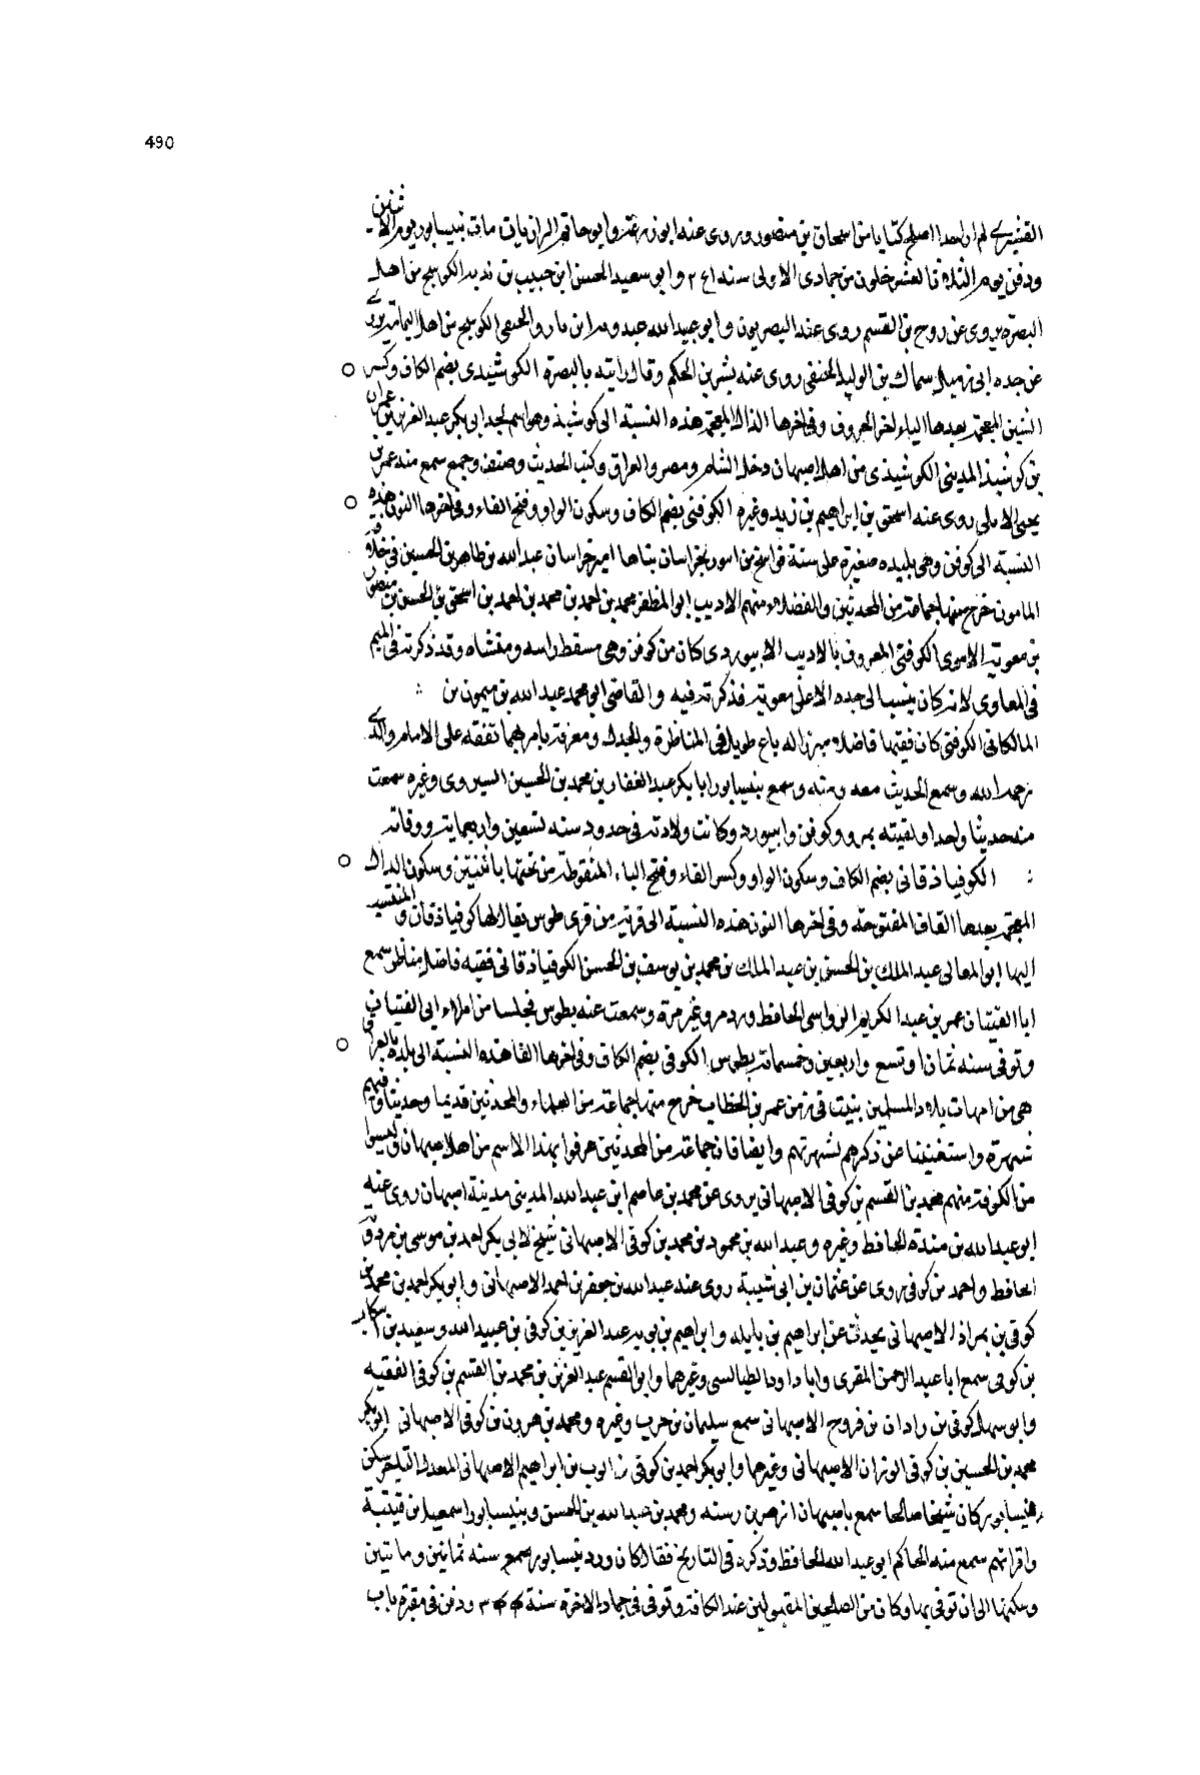 490
القشيري لم ار احدا اصلح كتابا من اسحاق بن منصور وروى عنه ابو زرعة وابو حاتم الرازيان مات بنيسابور يوم الاثنين
ودفن يوم الثلاثا لعشر خلون من جمادى الاولى سنه ٢٤١ وابو سعيد الحسن ابن حبيب بن ندبه الكوسج من اهل
البصره يروى عن روح بن القسم روى عنه البصريون وابو عبيد الله عبد ابن الحنفي الكوسج من اهل اليمامة يروى
عن جده ابى زميل سماك بن الوليد الحنفى روى عنه بشر بن الحكم وقال رايته بالبصرة الكوشيدى بضم الكاف وكسر
الشين المعجمة بعدها الياء اخر الحروف وفى اخرها الذال المعجمة هذه النسبة الى كوشيذ وهو اسم لجد ابى بكر عبد العزيز بن عمران
بن كوشيذ المدينى الكوشيذى من اهل اصبهان دخل الشام ومصر والعراق وكتب الحديث وصنف وجمع سمع منه عمر بن
يحيى الاملى روى عنه اسحق بن ابراهيم بن زيد وغيره الكوفنى بضم الكاف وسكون الواو وفتح الفاء وفى اخرها النون هذه
النسبة الى كوفن وهى بليده صغيرة على ستة فراسخ من ابيورد بخراسان بناها امير خراسان عبد الله بن طاهر بن الحسين فى خلافة
المامون خرج منها جماعة من المحدثين والفضلاء منهم الاديب ابو المظفر محمد بن احمد بن محمد بن احمد بن اسحق بن الحسن بن منصور
بن معوية الاموى الكوفنى المعروف بالاديب الابيوردى كان من كوفن وهى مسقط راسه ومنشاه وقد ذكرته فى الميم
فى المعاوى لانه كان ينسب الى جده الاعلى معوية فذكرته فيه والقاضى ابو محمد عبد الله بن ميمون بن
المالكانى الكوفنى كان فقيها فاضلا مبرزا له باع طويل فى المناظرة والجدل ومعرفة تامة بهما تفقه على الامام والدى
رحمه الله وسمع الحديث معه ومنه وسمع بنيسابور ابا بكر عبد الغفار بن محمد بن الحسين الشيروى وغيره سمعت
منه حديثا واحدا ولقيته بمرو وكوفن وابيورد وكانت ولادته فى حدود سنه تسعين واربعماية ووفاته
الكوفياذقانى بضم الكاف وسكون الواو وكسر الفاء وفتح الياء المنقوطة من تحتها باثنتين وسكون الذال
المعجمة بعدها القاف المفتوحة وفى اخرها النون هذه النسبة الى قرية من قرى طوس يقال لها كوفياذقان والمنتسب
اليها ابو المعالى عبد الملك بن الحسن بن عبد الملك بن محمد بن يوسف بن الحسن الكوفياذقانى فقيه فاضل مناظر سمع
ابا الفتيان عمر بن عبد الكريم الرواسى الحافظ ورد مرو غير مرة وسمعت عنه بطوس مجلسا من املاء ابى الفتيان
وتوفى سنه ثمان او تسع واربعين وخمسماية بطوس الكوفى بضم الكاف وفى اخرها الفا هذه النسبة الى بلدة بالعراق
هى من امهات بلاد المسلمين بنيت فى زمن عمر بن الخطاب خرج منها جماعة من العلماء والمحدثين قديما وحديثا وفيهم
شهرة واستغنينا عن ذكرهم لشهرتهم وايضا فان جماعة من المحدثين عرفوا بهذا الاسم من اهل اصبهان وليسوا
من الكوفة منهم محمد بن القسم بن كوفى الاصبهانى يروى عن محمد بن عاصم ابن عبد الله المدينى مدينة اصبهان روى عنه
ابو عبد الله بن مندة الحافظ وغيره وعبد الله بن محمود بن محمد بن كوفى الاصبهانى شيخ لابى بكر احمد بن موسى بن مردوية
الحافظ واحمد بن كوفى يروى عن عثمان بن ابى شيبة روى عنه عبد الله بن جعفر بن احمد الاصبهانى وابو بكر احمد بن محمد بن
كوفى بن الاصبهانى يحدث عن ابراهيم بن وابراهيم بن عبد العزيز بن كوفى بن عبيد الله وسعيد بن
بن كوفى سمع ابا عبد الرحمن المقرى وابا داود الطيالسى وغيرهما وابو القسم عبد العزيز بن محمد بن القسم بن كوفى الفقيه
وابو سهل كوفى بن بن فروخ الاصبهانى سمع سليمان بن حرب وغيره ومحمد بن هرون بن كوفى الاصبهانى ابو بكر
محمد بن الحسين بن كوفى الوزان الاصبهانى وغيرهما وابو بكر احمد بن كوفى بن ابراهيم الاصبهانى المعدل التاجر سكن
نيسابور كان شيخا صالحا سمع باصبهان بن رسته ومحمد بن عبد الله بن الحسن وبنيسابور اسمعيل بن قتيبة
واقرانهم سمع منه الحاكم ابو عبد الله الحافظ وذكره فى التاريخ فقال كان ورد نيسابور سنه ثمانين وماتين
وسكنها الى ان توفى بها وكان من الصالحين المقبولين عند الكافة وتوفى فى جماد الاخرة سنة ودفن فى مقبرة باب